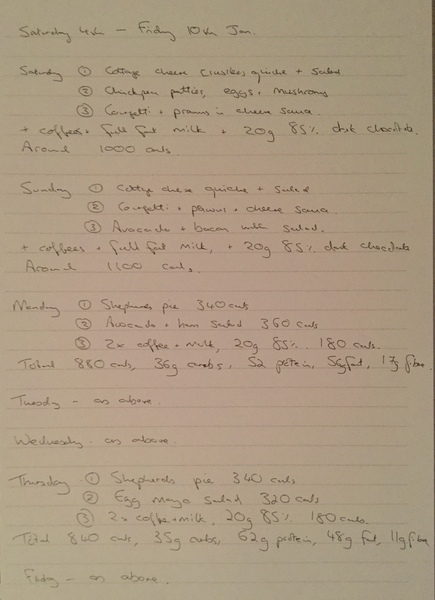 Saturday 4th - Friday 10th Jan.
Saturday ① Cottage cheese crustless quiche + salad
② Chickpea patties, eggs + mushrooms
③ Courgetti + prawns in cheese sauce.
+ coffees + full fat milk + 20g 85% dark chocolate.
Around 1000 cals.
Sunday ① Cottage cheese quiche + salad
② Courgetti + prawns + cheese sauce.
③ Avocado + bacon with salad.
+ coffees + full fat milk, + 20g 85% dark chocolate
Around 1100 cals.
Monday ① Shepherds pie 340 cals
② Avocado + ham salad 360 cals
③ 2x coffee + milk, 20g 85% 180 cals.
Total 880 cals, 36g carbs, 52 protein, 56g fat, 17g fibre.
Tuesday - as above.
Wednesday - as above.
Thursday ① Shepherds pie 340 cals
② Egg mayo salad 320 cals
③ 2x coffee + milk, 20g 85% 180 cals.
Total 840 cals, 35g carbs, 62g protein, 48g fat, 11g fibre
Friday - as above.